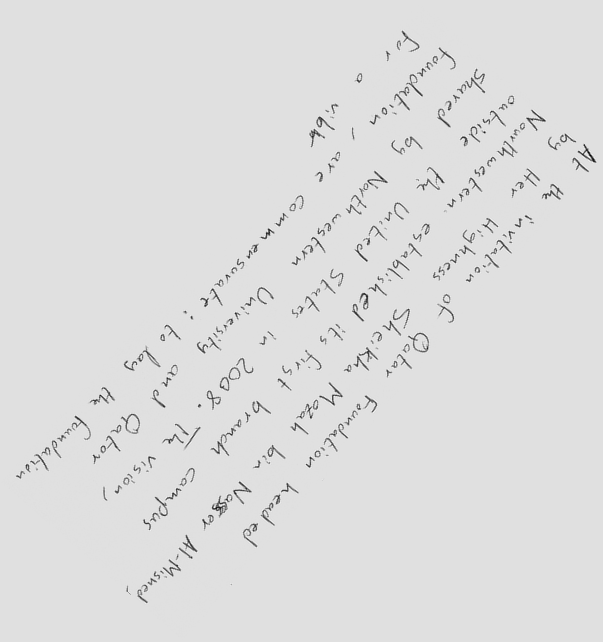 At the invitation of Qatar Foundation headed
by Her Highness Sheikha Mozah bin Nasser Al-Misned,
Nourthwestern established its first branch campus
outside the United States in 2008. The vision,
shared by Northwestern University and Qatar
Foundation, are commensurate: to lay the foundation
for a